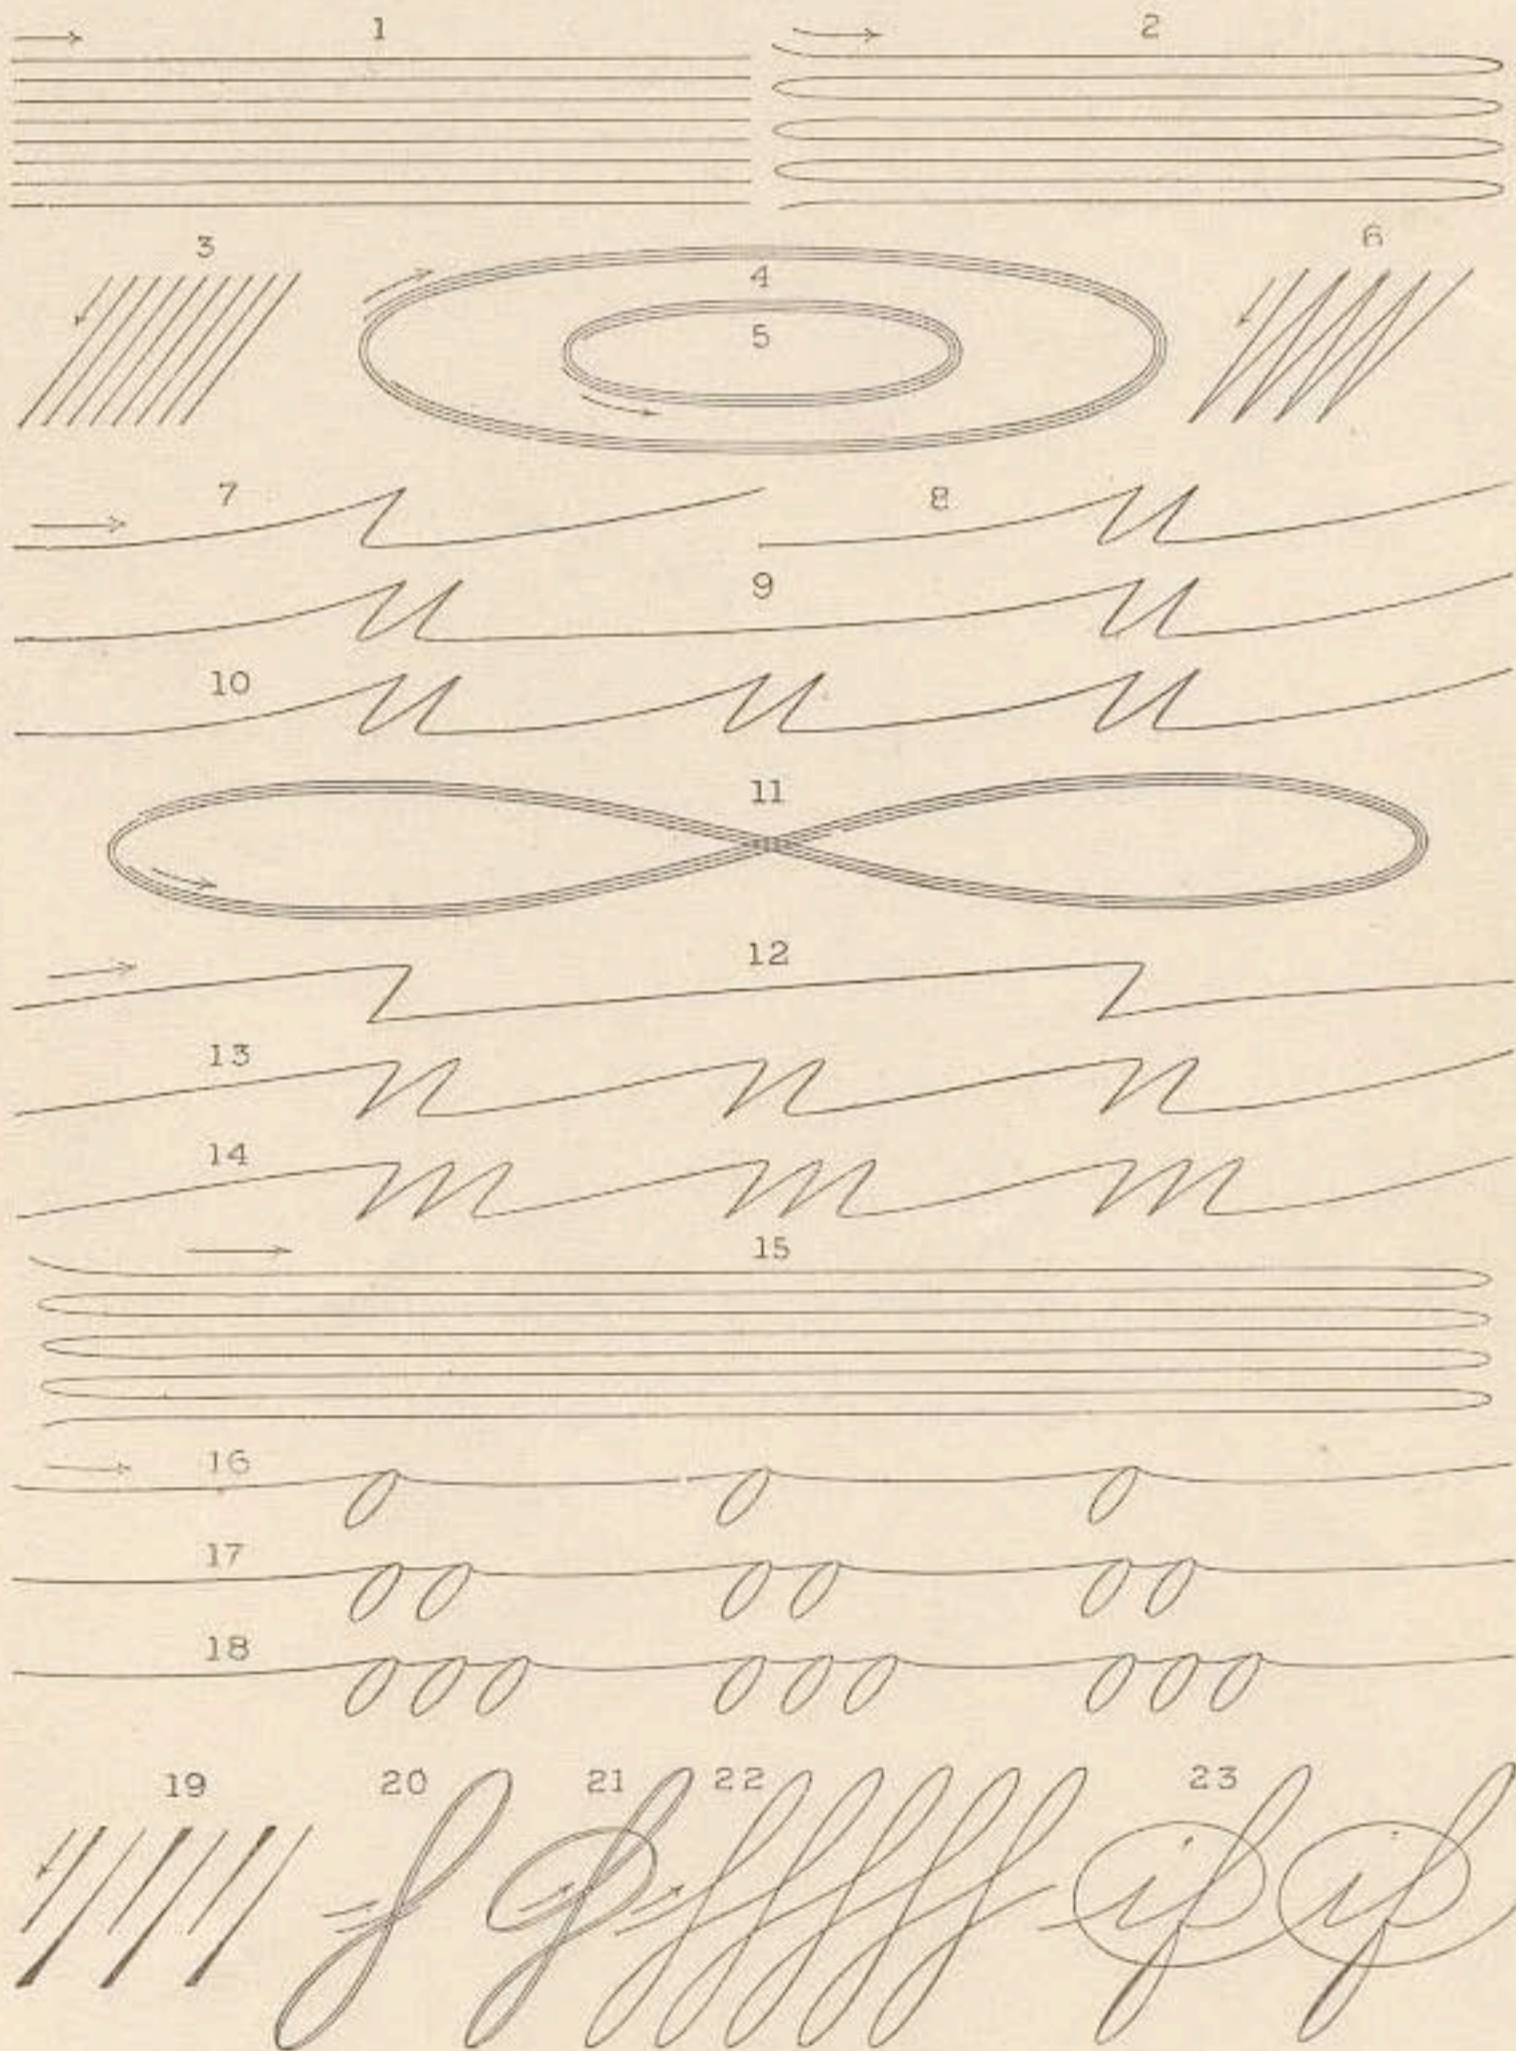 1 2
3 4 6
5
7 8
9
10
11
12
13
14
15
16
17
18
19 20 21 22 23
if if